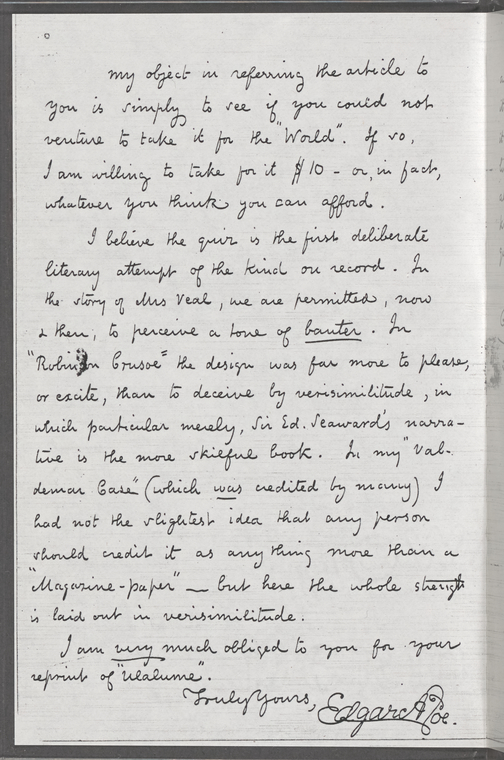 My object in referring the article to
you is simply to see if you could not
venture to take it for the "World". If so,
I am willing to take for it $10 - or, in fact,
whatever you think you can afford.
I believe the quiz is the first deliberate
literary attempt of the kind on record. In
the story of Mrs Veal, we are permitted, now
& then, to perceive a tone of banter. In
"Robinson Crusoe" the design was far more to please,
or excite, than to deceive by verisimilitude, in
which particular merely, Sir Ed. Seaward's narra-
tive is the more skilful book. In my "Val-
demar Case" (which was credited by many) I
had not the slightest idea that any person
should credit it as any thing more than a
"Magazine-paper" — but here the whole strength
is laid out in verisimilitude.
I am very much obliged to you for your
reprint of "Ulalume".
Truly Yours,
Edgar A Poe.